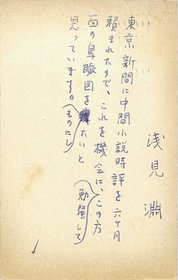 浅見淵
東京新聞に中間小説時評を六ケ月
頼まれたので、これを機会に、この方
面の鳥瞰図を
たいと
勉強して
ものにし
思っています。